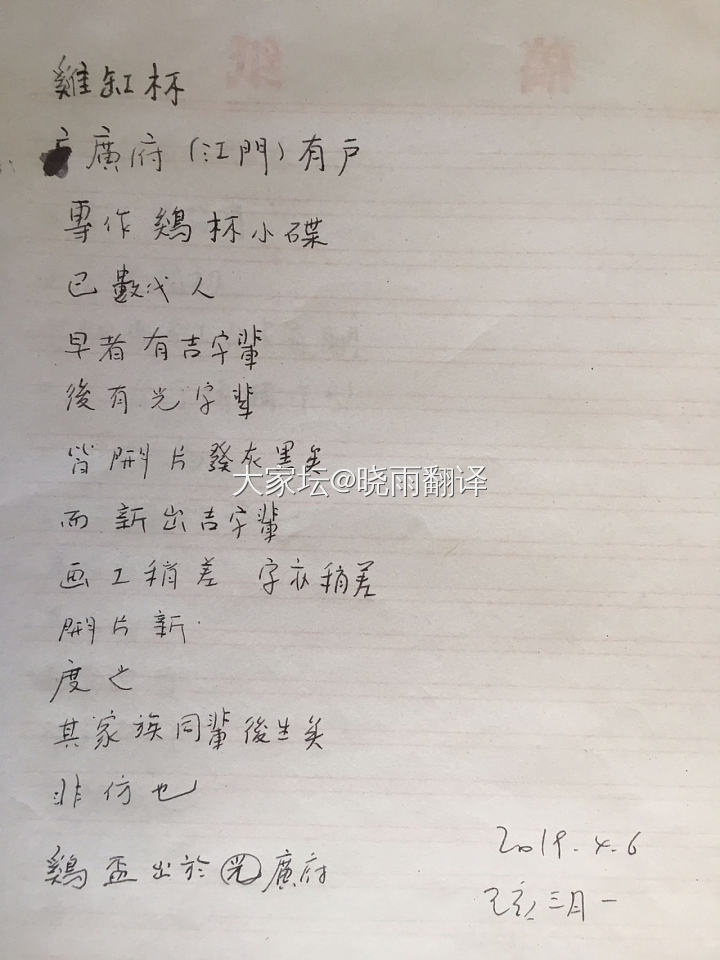 稿 纸
雞缸杯
廣府(江門)有戶
專作鷄杯小碟
已數代人
早者有吉字輩
後有光字輩
皆開片發灰黑矣
大家坛@晓雨翻译
而新出吉字輩
画工稍差 字亦稍差
開片新
度之
其家族同輩後生矣
非仿也
鷄盃出於 廣府
2019.4.6
己亥三月一